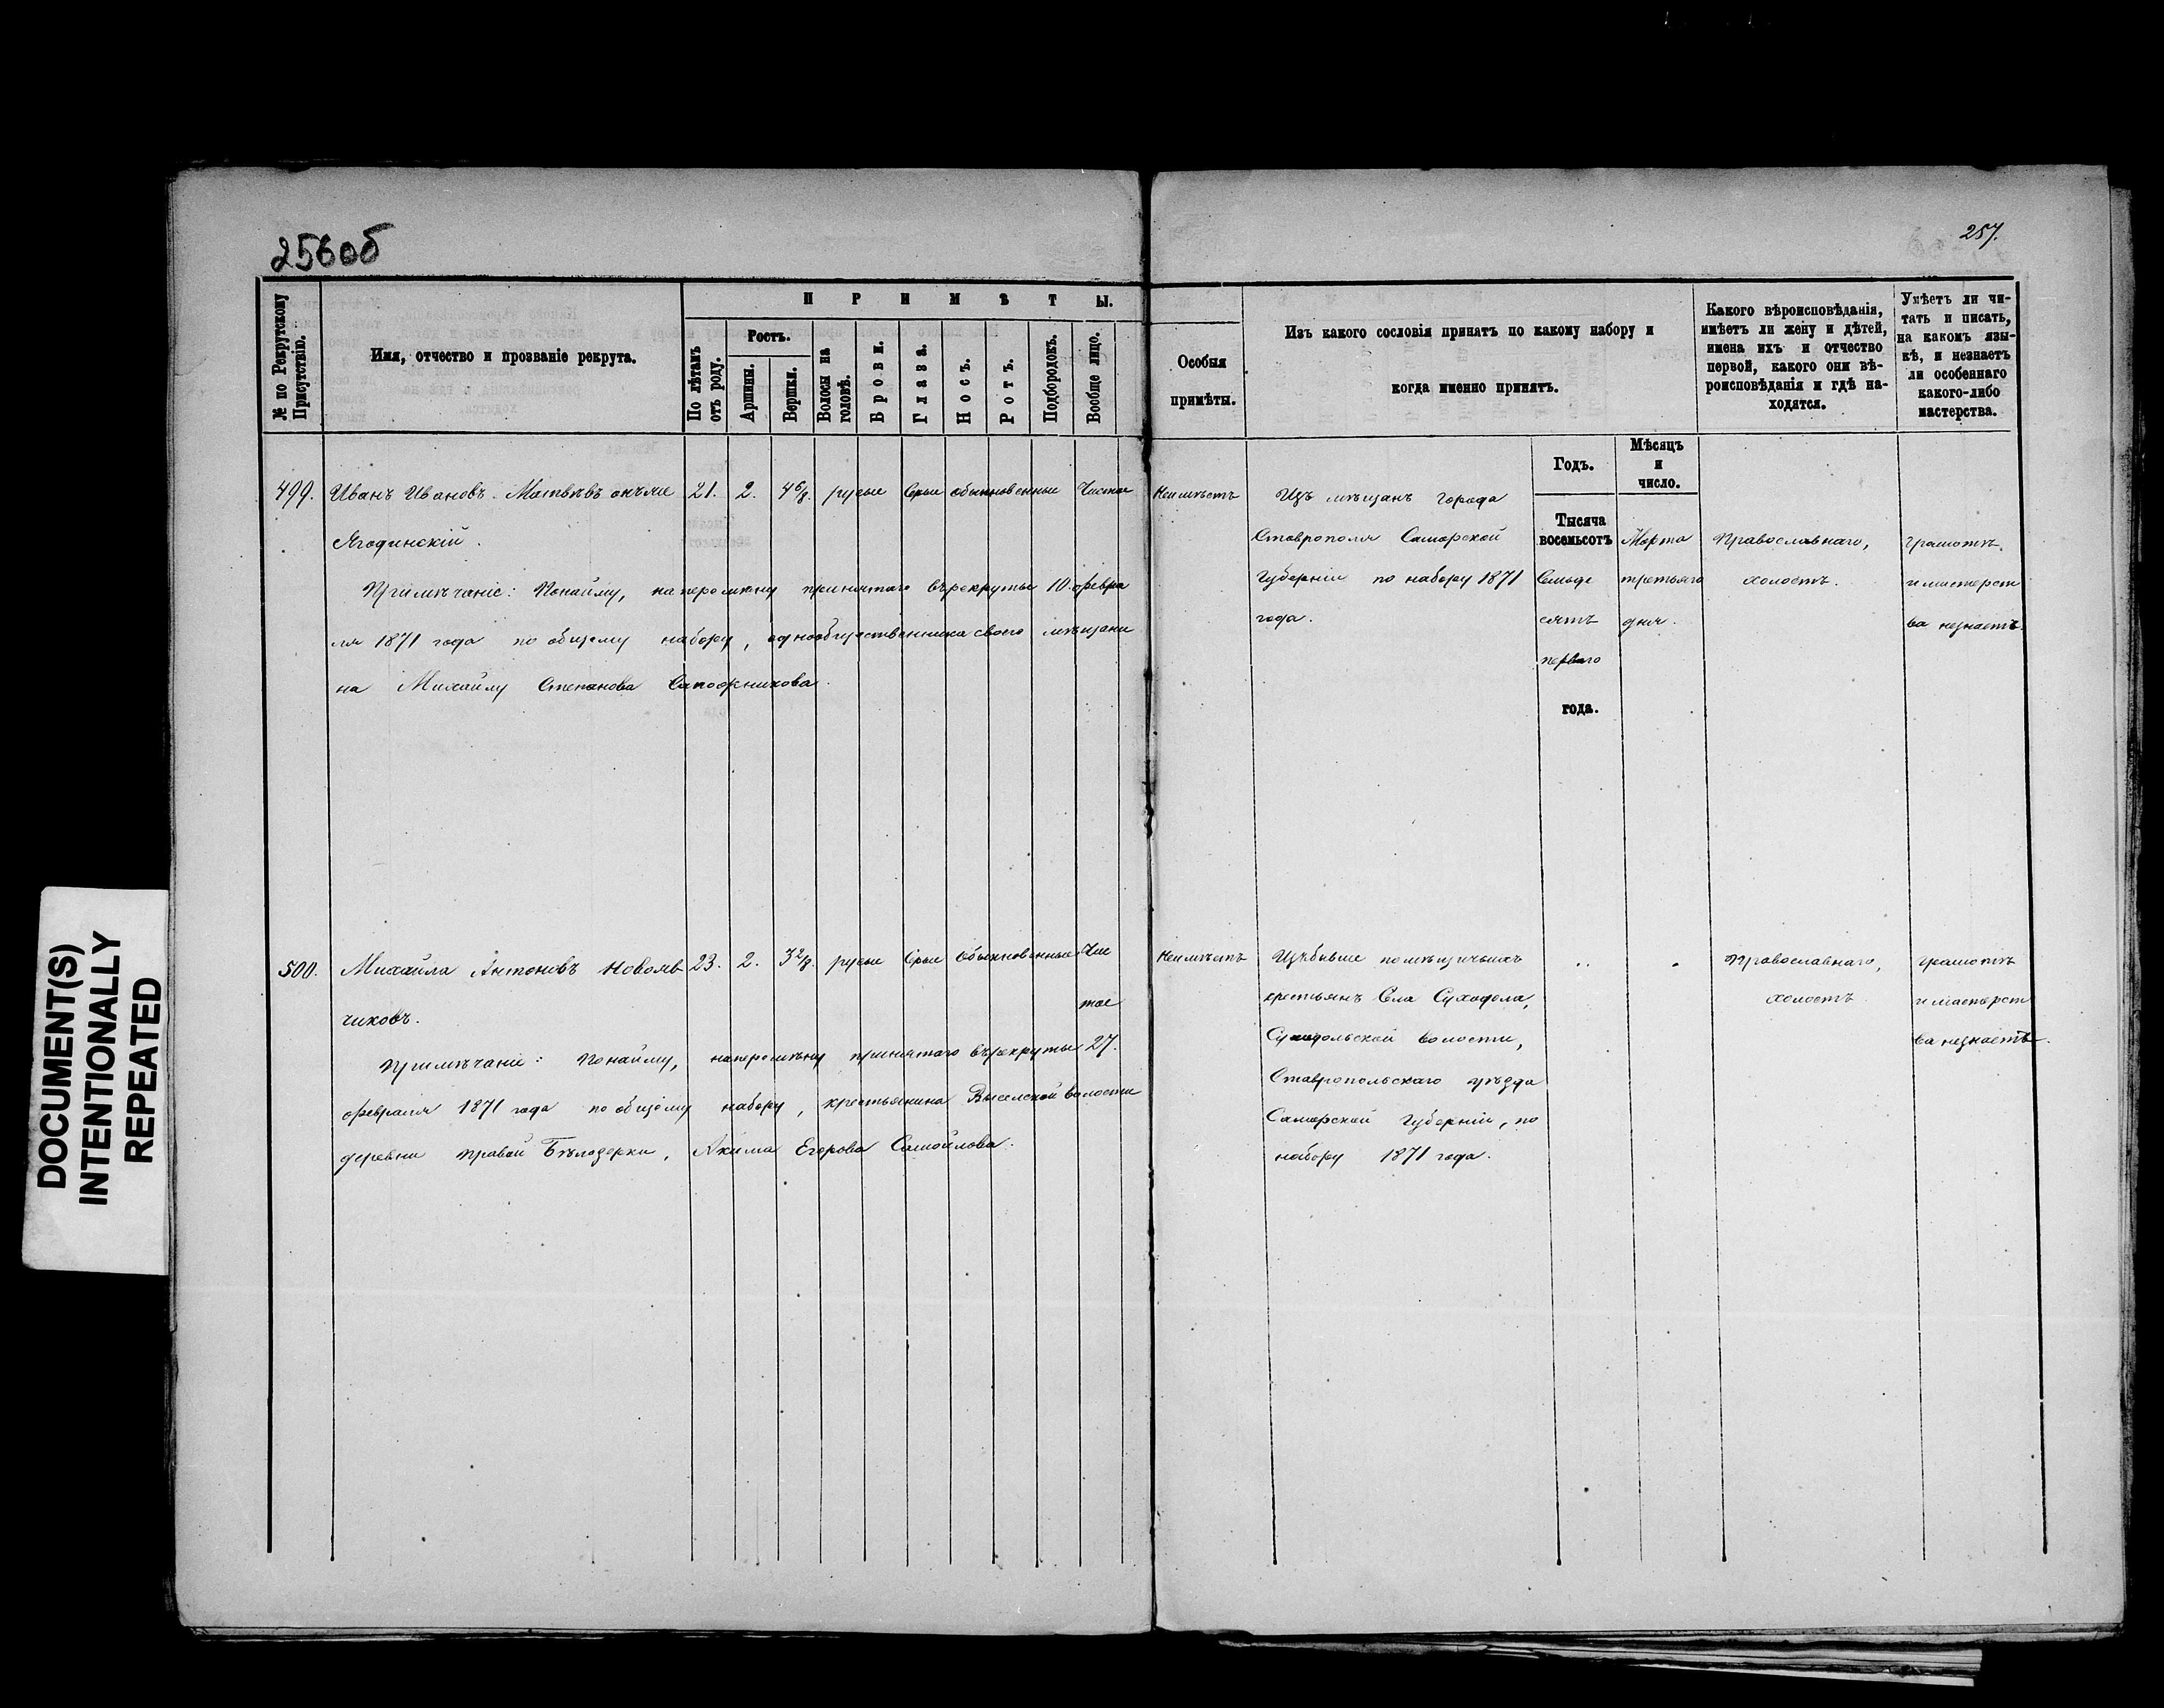 256об
257.
№ по Рекрутскому Присутствію.
Имя, отчество и прозваніе рекрута.
ПРИМѢТЫ.
По лѣтамъ отъ роду.
Ростъ.
Аршины.
Вершки.
Волосы на головѣ.
Брови.
Глаза.
Носъ.
Ротъ.
Подбородокъ.
Вообще лицо.
Особыя
примѣты.
Изъ какого сословія принятъ по какому набору и
когда именно принятъ.
Какого вѣроисповѣданія,
имѣетъ ли жену и дѣтей,
имена ихъ и отчество
первой, какого они вѣ-
роисповѣданія и гдѣ на-
ходятся.
Умѣетъ ли чи-
тать и писать,
на какомъ язы-
кѣ, и незнаетъ
ли особеннаго
какого-либо
мастерства.
Годъ.
Мѣсяцъ
и
число.
499. Иванъ Ивановъ Матвѣевъ онъже 21. 2. 4 6/8. русые Серые обыкновенные Чистое
Ягодинскій.
Примѣчаніе: Понайму, наперемѣну принятаго върекруты 10. февра
ля 1871 года по общему набору, однообщественника своего мѣщани
на Михайлу Степанова Сапожникова.
Неимѣетъ
Изъ мѣщанъ города
Ставрополя Самарской
Губерніи по набору 1871
года.
Тысяча
восемьсотъ
Семьде
сятъ
перваго
года.
Марта
третьяго
дня.
Православнаго,
холостъ.
Грамотѣ
и мастерст
ва незнаетъ.
500. Михайла Антоновъ Новояв 23. 2. 3 2/8. русые Серые Обыкновенные Чис
тое
чиковъ.
Примѣчаніе: Понайму, наперемѣну принятаго върекруты 27.
февраля 1871 года по общему набору, крестьянина Выселской волости
деревни Правой Бѣлозерки, Акима Егорова Самойлова.
Неимѣетъ
Изъбывше помѣщичьихъ
крестьянъ Села Суходола,
Суходольской волости,
Ставропольскаго уѣзда
Самарской Губерніи, по
набору 1871 года.
Православнаго,
холостъ
грамотѣ
и мастерст
ва незнаетъ.
DOCUMENT(S)
INTENTIONALLY
REPEATED